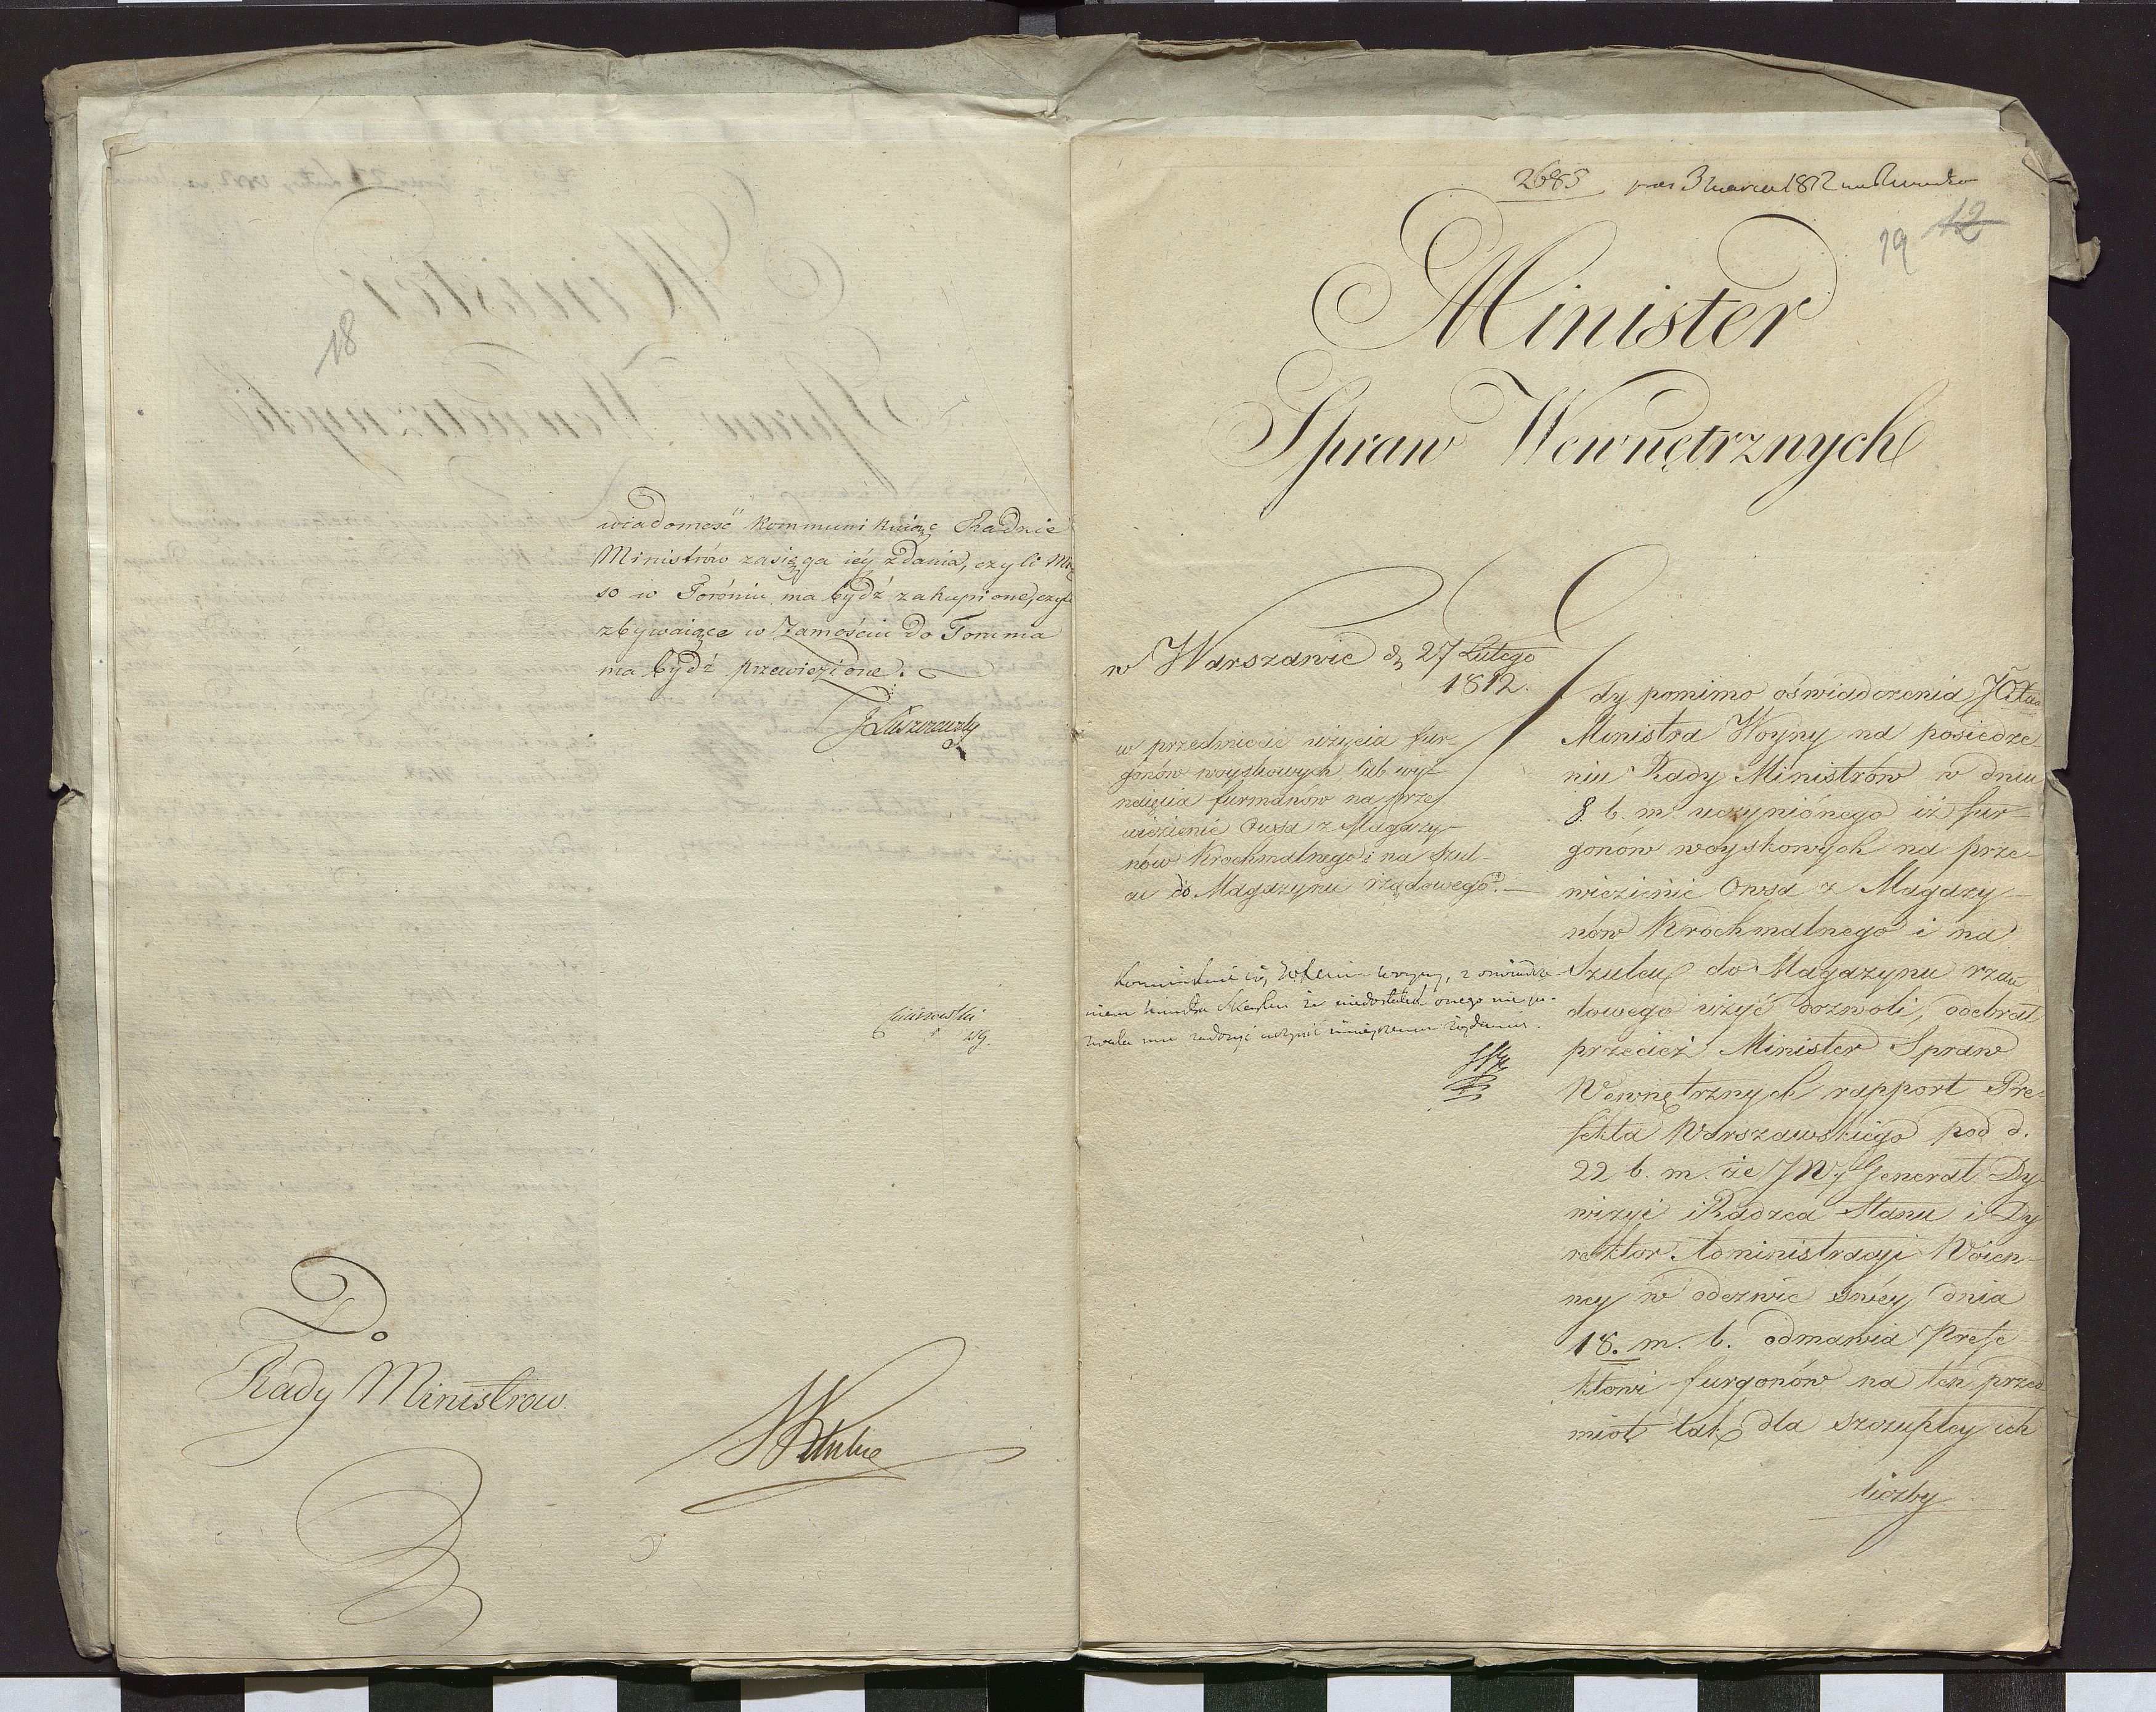 18
wiadomość kommunikuiąc Radzie
Ministrów zasięga iéy zdania, czyli Mię
so w Toruniu ma bydź zakupione, czyli
zbywaiące w Zamościu do Torunia
ma bydź przewiezione.
J Łuszczewski
Do
Rady Ministrow.
2685 3 marca 1812
19 12
Minister
Spraw Wewnętrznych
w Warszawie d. 27 Lutego
1812.
w przedmiocie użycia fur-
gonów woyskowych lub wy-
naięcia furmanów na prze
wiezienie Owsa z Magazy-
nów Krochmalnego i na Szul-
cu do Magazynu rządowego.
Gdy pomimo oświadczenia
Ministra Woyny na posiedze-
niu Rady Ministrów w dniu
8 b. m. uczynionego iż fur-
gonów woyskowych na prze-
wiezienie Owsa z Magazy-
nów Krochmalnego i na
Szulcu do Magazynu rzą-
dowego użyć dozwoli, odebrał
przecież Minister Spraw
Wewnętrznych rapport Pre-
fekta Warszawskiego pod d.
22 b. m. że JW. Generał Dy-
wizyi i Radzca Stanu i Dy
rektor Administracyi Woien-
ney w odezwie swéy dnia
18. m. b. odmawia Prefe
ktowi furgonów na ten przed
miot tak dla szczupłey ich
liczby